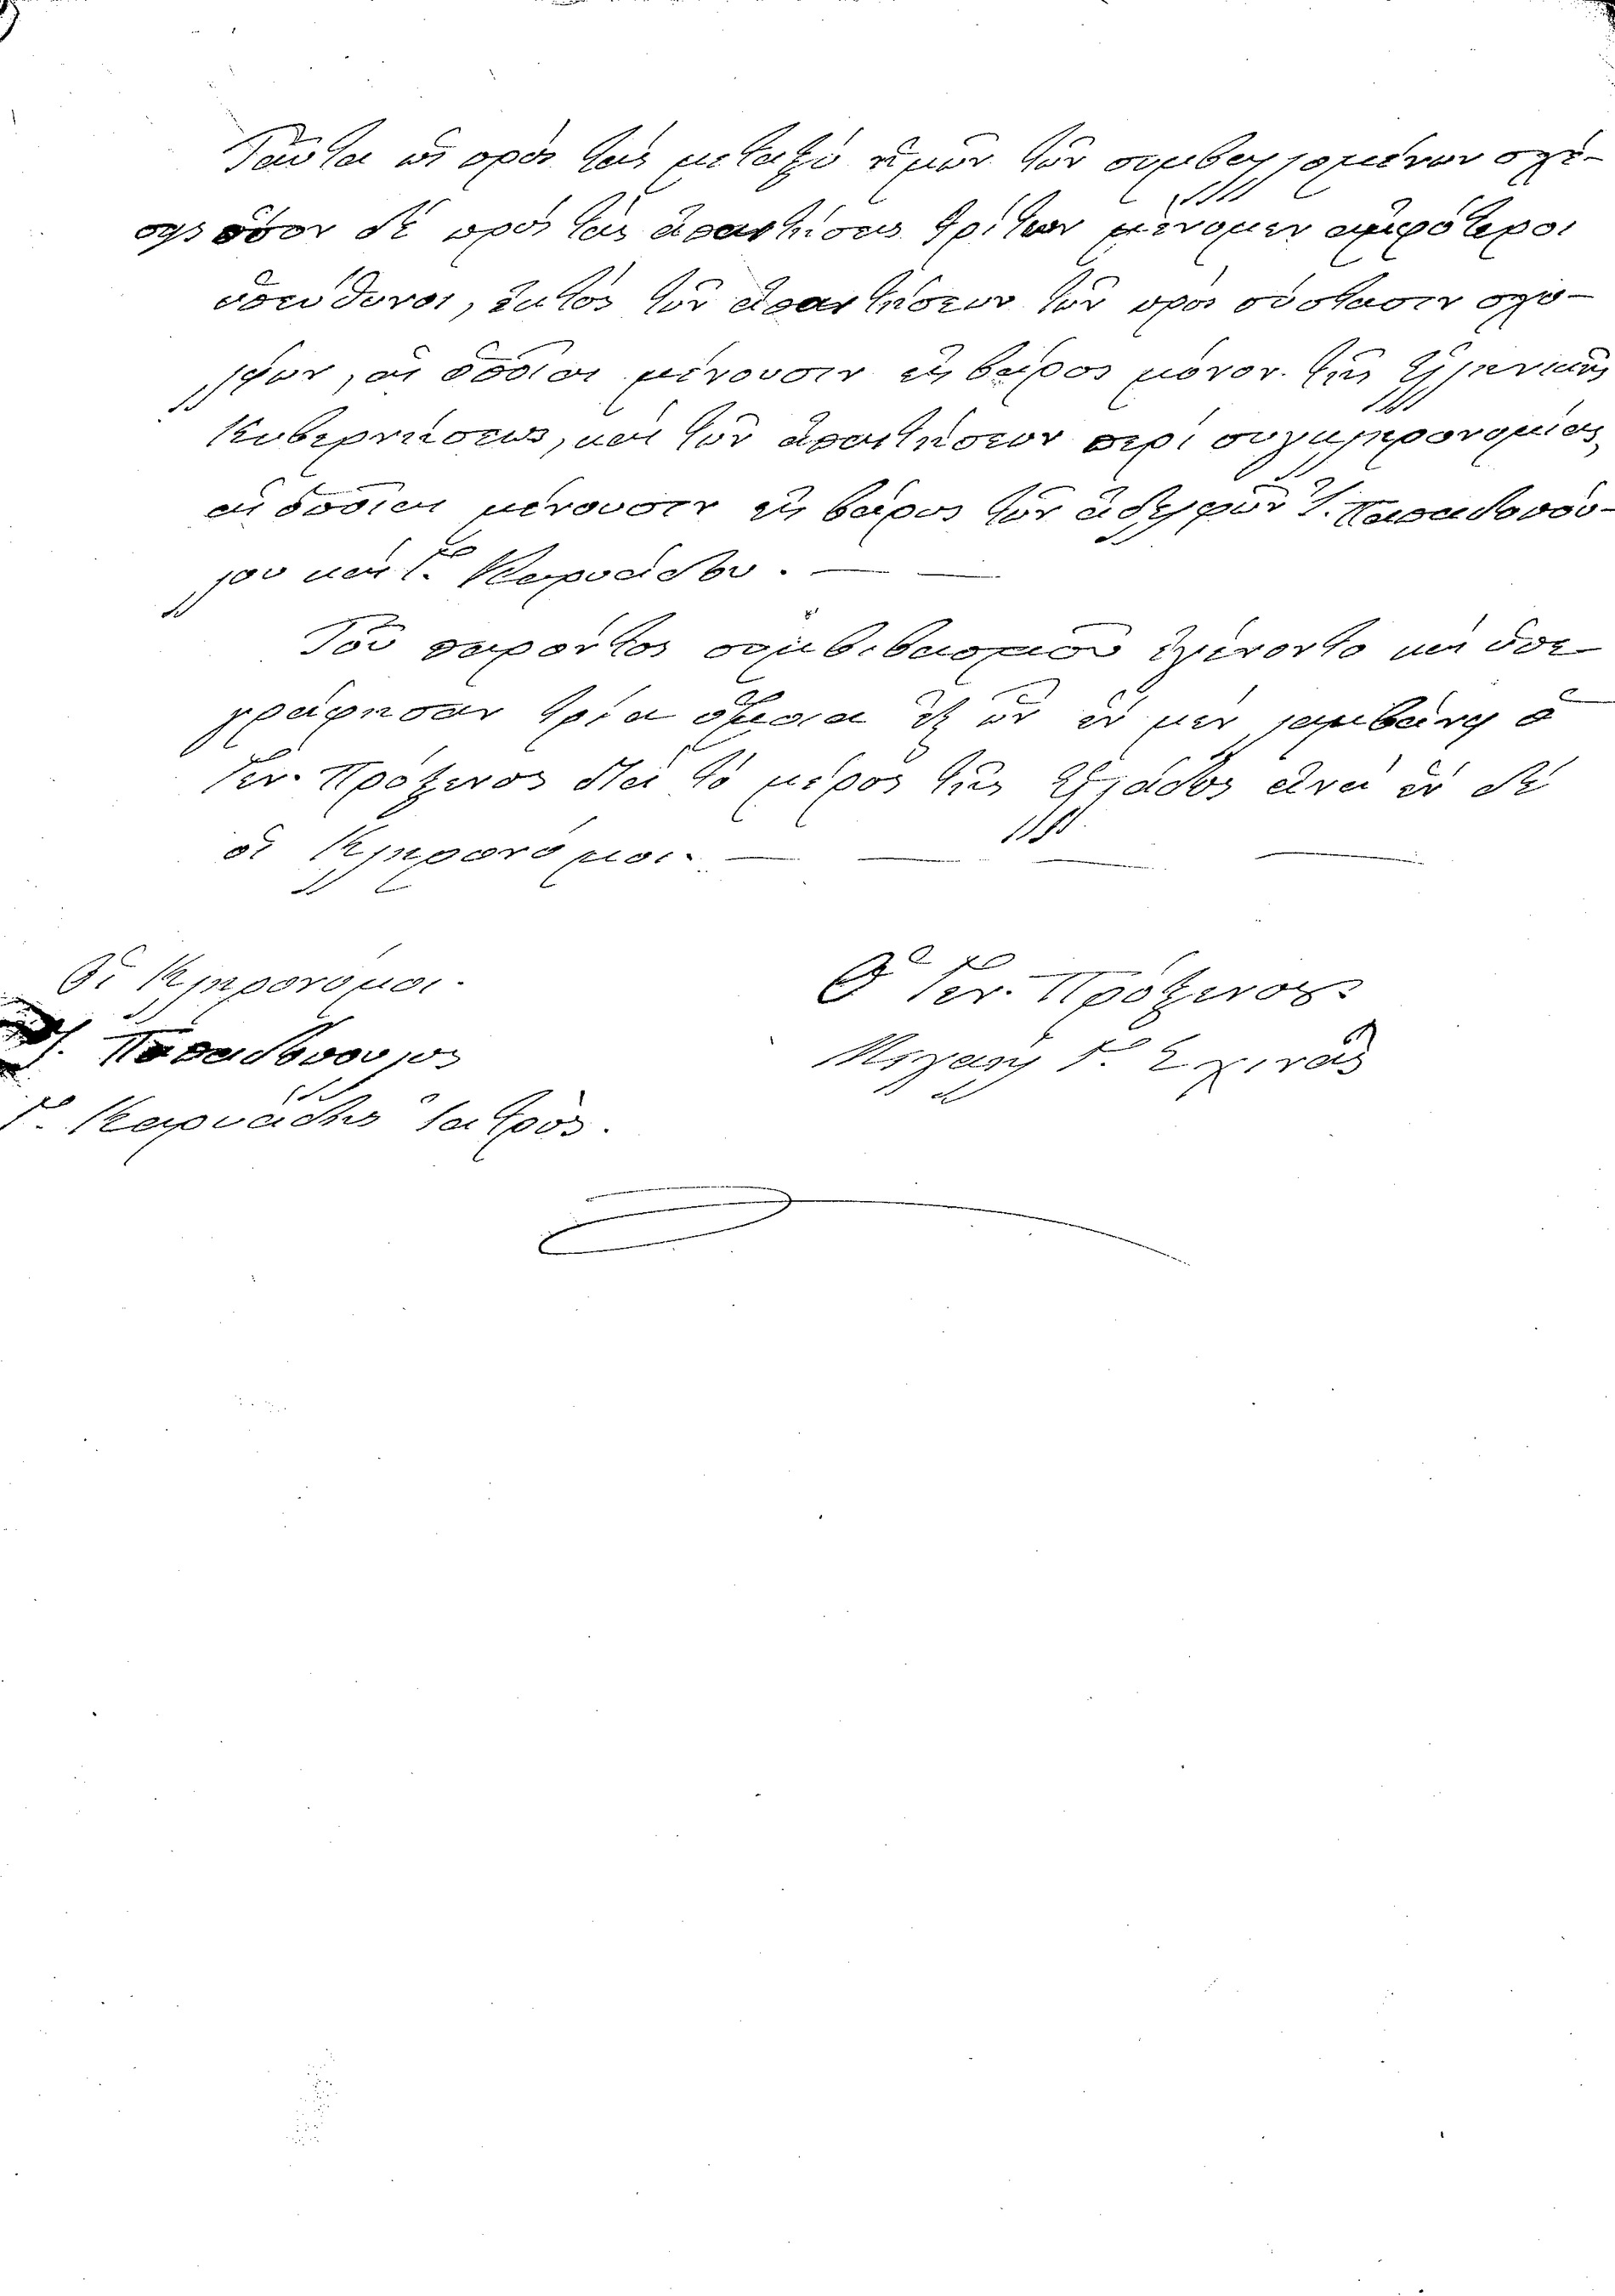 Ταῦτα ὡς πρὸς τὰς μεταξὺ ἡμῶν τῶν συμβαλλομένων σχέ-
σεις ὅσον δὲ πρὸς τὰς ἀπαιτήσεις τρίτων μένομεν ἀμφότεροι
ὑπεύθυνοι, ἐκτὸς τῶν ἀπαιτήσεων τῶν πρὸς σύστασιν σχο-
λείων, αἱ ὁποῖαι μένουσιν εἰς βάρος μόνον τῆς Ἑλληνικῆς
Κυβερνήσεως, καὶ τῶν ἀπαιτήσεων περὶ συγκληρονομίας
αἱ ὁποῖαι μένουσιν εἰς βάρος τῶν ἀδελφῶν Ι. Παπαδοπού-
λου καὶ Γ. Καρυάδου.
Τοῦ παρόντος συμβιβασμοῦ ἐγένοντο καὶ ὑπε
γράφησαν τρία ὅμοια ἐξ ὧν ἓν μὲν λαμβάνει ὁ
Γεν. Πρόξενος διὰ τὸ μέρος τῆς Ἑλλάδος ἀνὰ ἓν δὲ
οἱ Κληρονόμοι.
Οἱ Κληρονόμοι.
Ι. Παπαδόπουλος
Γ. Καρυάδης ἰατρός.
Ὁ Γεν. Πρόξενος
Μιχαὴλ Γ. Σχινᾶς